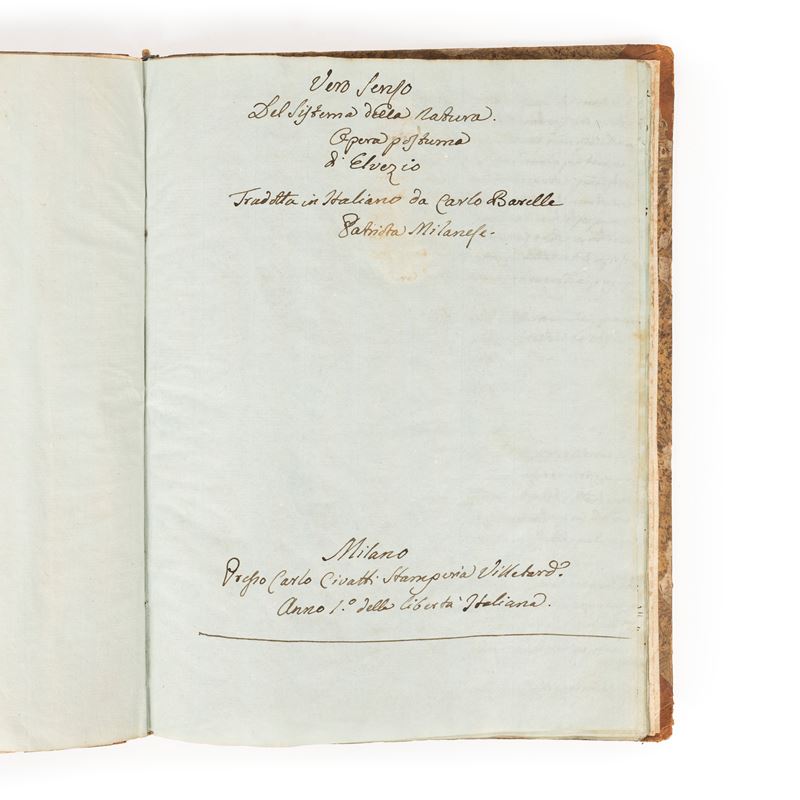 Vero Senso
Del Sistema della Natura.
Opera postuma
di Elvezio
Tradotta in Italiano da Carlo Barelle
Patriota Milanese.
Milano
Presso Carlo Civatti Stamperia Villetard?
Anno 1.º della libertà Italiana.